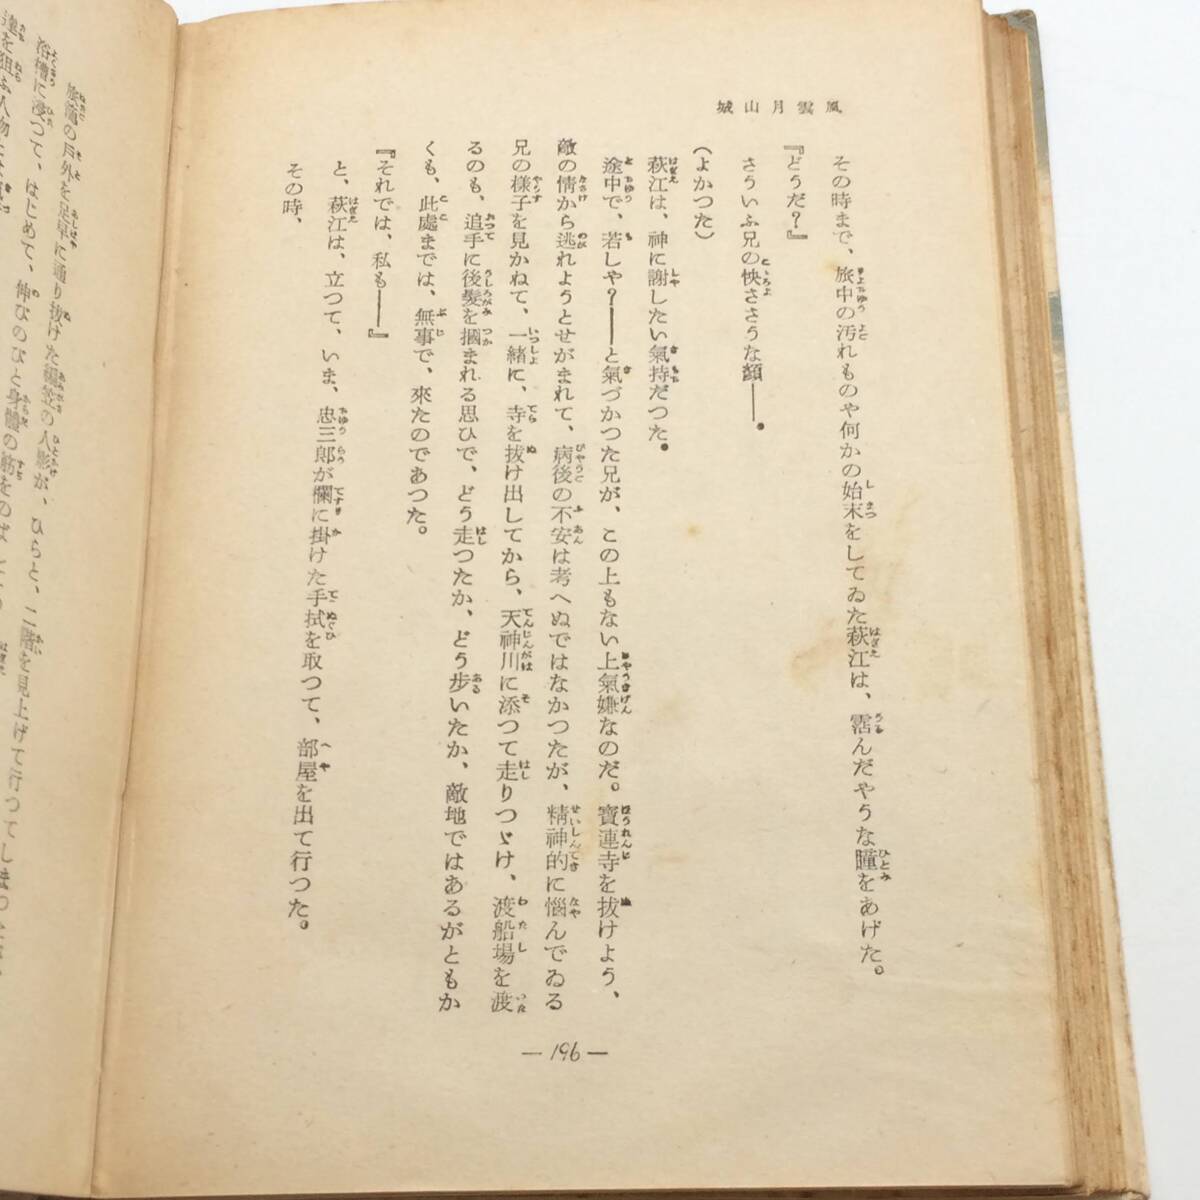 風雲月山城
その時まで、旅中の汚れものや何かの始末をしてゐた萩江は、霑んだやうな瞳をあげた。
『どうだ？』
さういふ兄の快ささうな顏――。
（よかつた）
萩江は、神に謝したい氣持だつた。
途中で、若しや？――と氣づかつた兄が、この上もない上氣嫌なのだ。寶蓮寺を拔けよう、
敵の情から逃れようとせがまれて、病後の不安は考へぬではなかつたが、精神的に惱んでゐる
兄の樣子を見かねて、一緒に、寺を拔け出してから、天神川に添つて走りつゞけ、渡船場を渡
るのも、追手に後髮を摑まれる思ひで、どう走つたか、どう步いたか、敵地ではあるがともか
くも、此處までは、無事で、來たのであつた。
『それでは、私も――』
と、萩江は、立つて、いま、忠三郎が欄に掛けた手拭を取つて、部屋を出て行つた。
その時、
― 196 ―
旅籠の戶外を足早に通り拔けた編笠の人影が、ひらと、二階を見上げて行つてしまつた
浴槽に浸つて、はじめて、伸びのびと身體の筋をのば
達を狙ふ人物